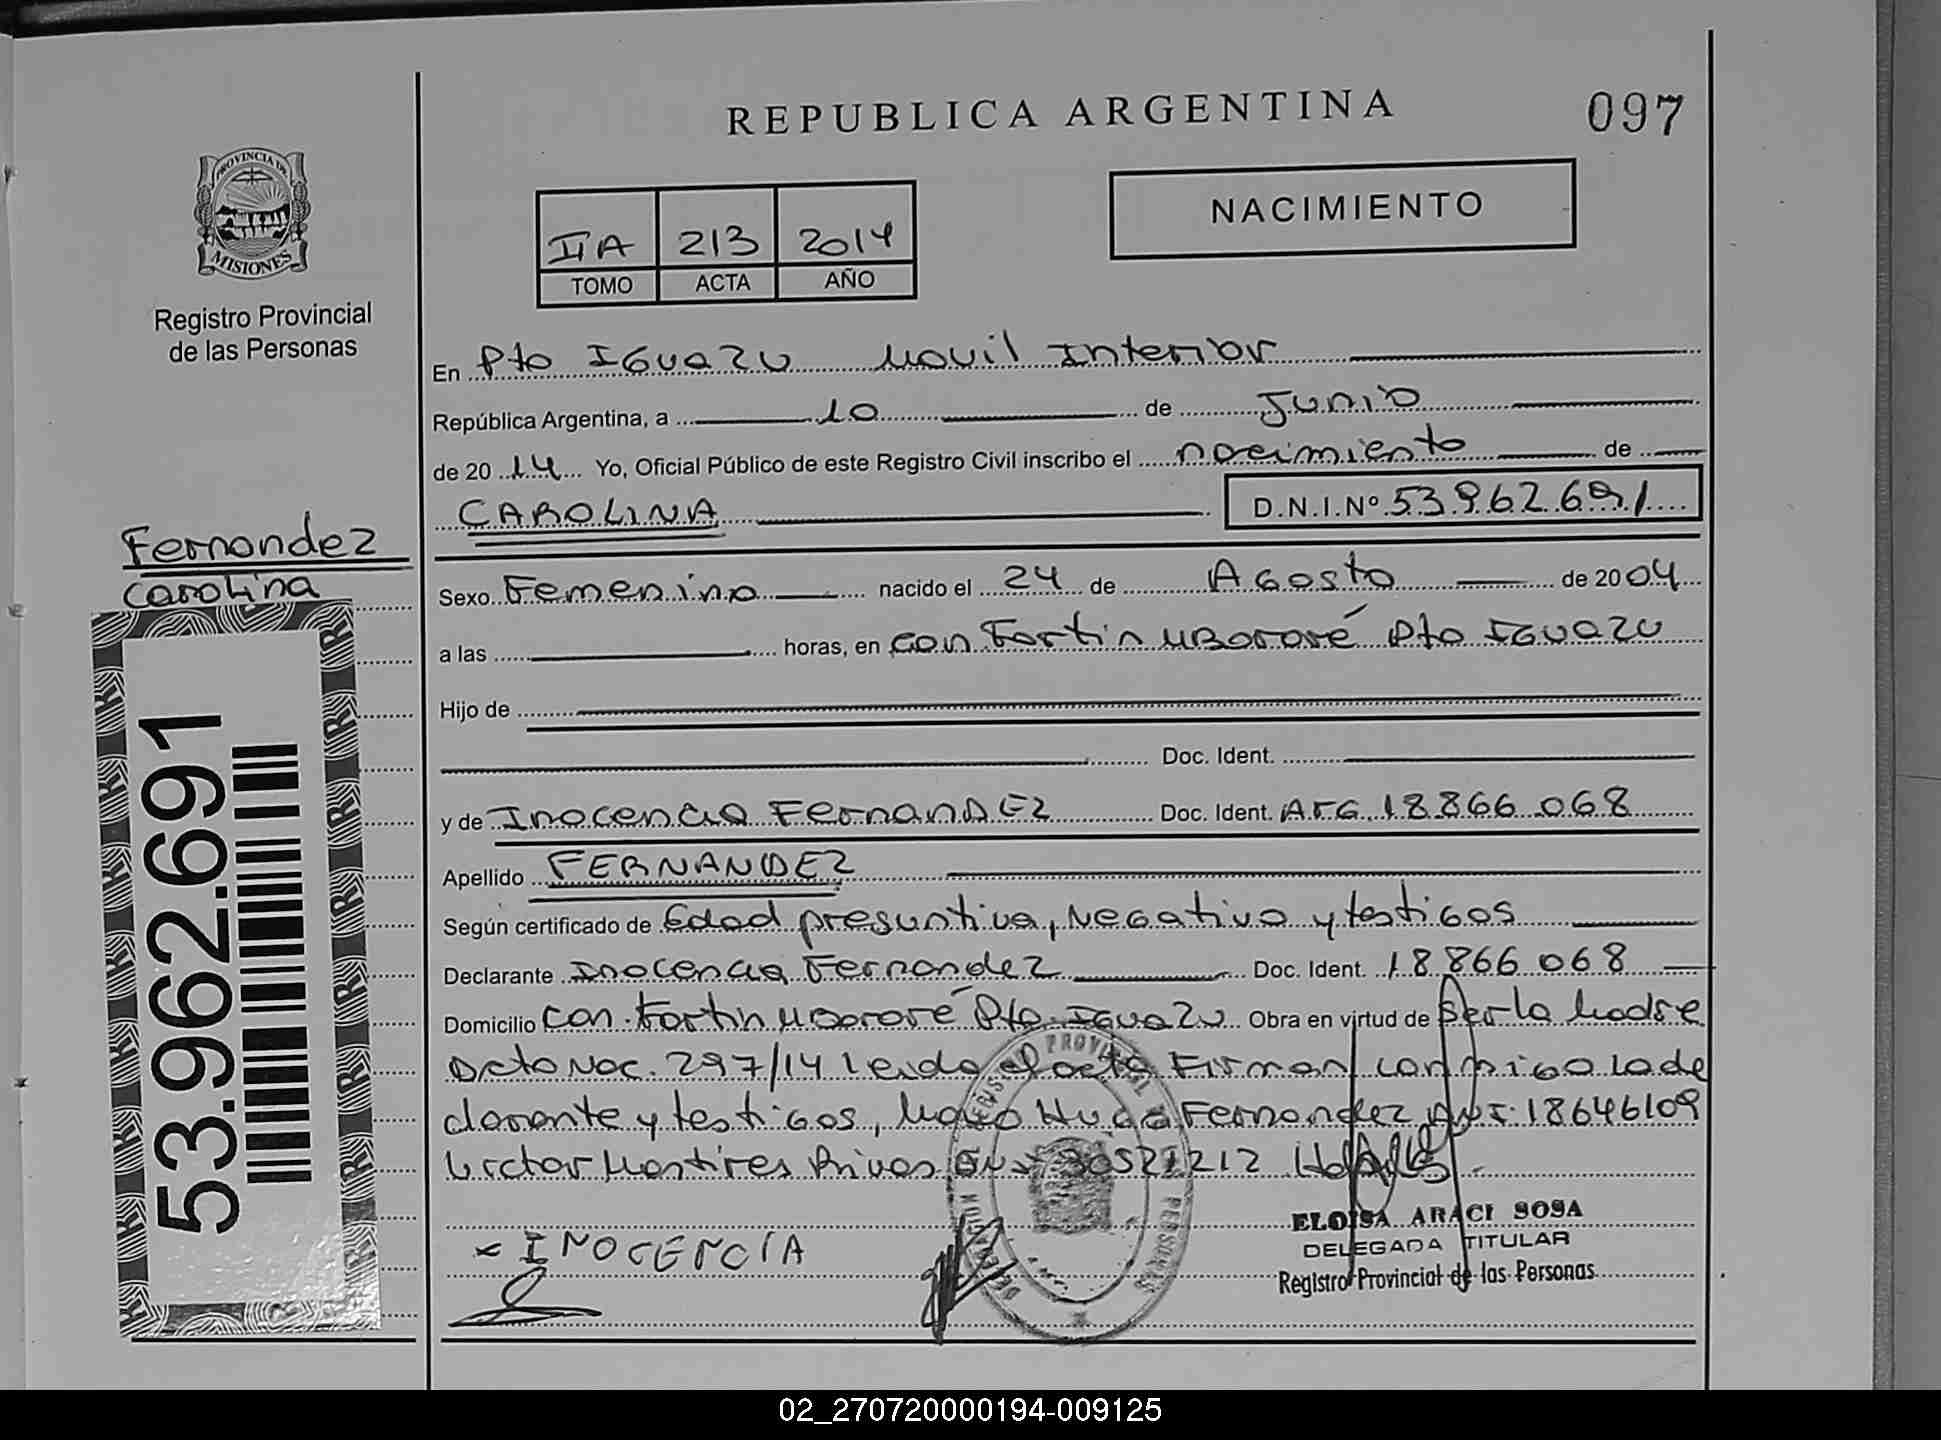 REPUBLICA ARGENTINA
097
PROVINCIA DE
MISIONES
Registro Provincial
de las Personas
NACIMIENTO
IIA 213 2014
TOMO ACTA AÑO
En Pto IGuazu Movil Interior
República Argentina, a 10 de Junio
de 2014 Yo, Oficial Público de este Registro Civil inscribo el nacimiento de
CAROLINA D.N.I.Nº 53962691
Fernandez
Carolina
Sexo Femenino nacido el 24 de Agosto de 2004
a las horas, en Con Fortin Mbororé Pto IGuazu
Hijo de
Doc. Ident.
y de Inocencia Fernandez Doc. Ident. Arg. 18866068
Apellido FERNANDEZ
Según certificado de Edad presuntiva, Negativo y testigos
Declarante Inocencia Fernandez Doc. Ident. 18866068
Domicilio Con. Fortin Mbororé Pto IGuazu Obra en virtud de Ser la Madre
Acto Nac. 297/14 leida el acta Firman conmigo la de
clarante y testigos, Hugo Fernandez DNI: 18646109
Martires Rivas
53.962.691
INOCENCIA
ELOISA ARACI SOSA
DELEGADA TITULAR
Registro Provincial de las Personas
02_270720000194-009125